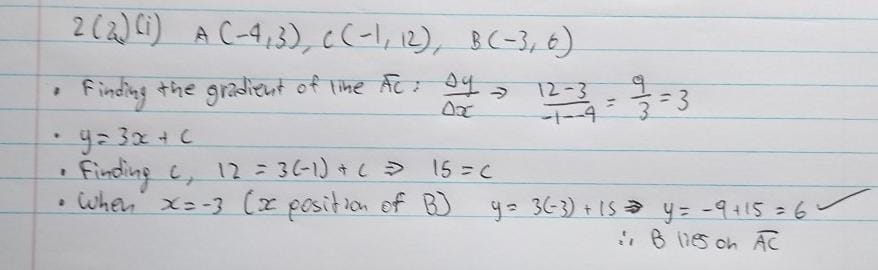 2(a)(i) A(-4,3), C(-1,12), B(-3,6)
• Finding the gradient of line A̅C̅: Δy/Δx ⇒ 12-3/-1--4 = 9/3 = 3
• y=3x+c
• Finding c, 12=3(-1)+c ⇒ 15=c
• When x=-3 (x position of B) y=3(-3)+15 ⇒ y=-9+15=6 ✓
∴ B lies on A̅C̅